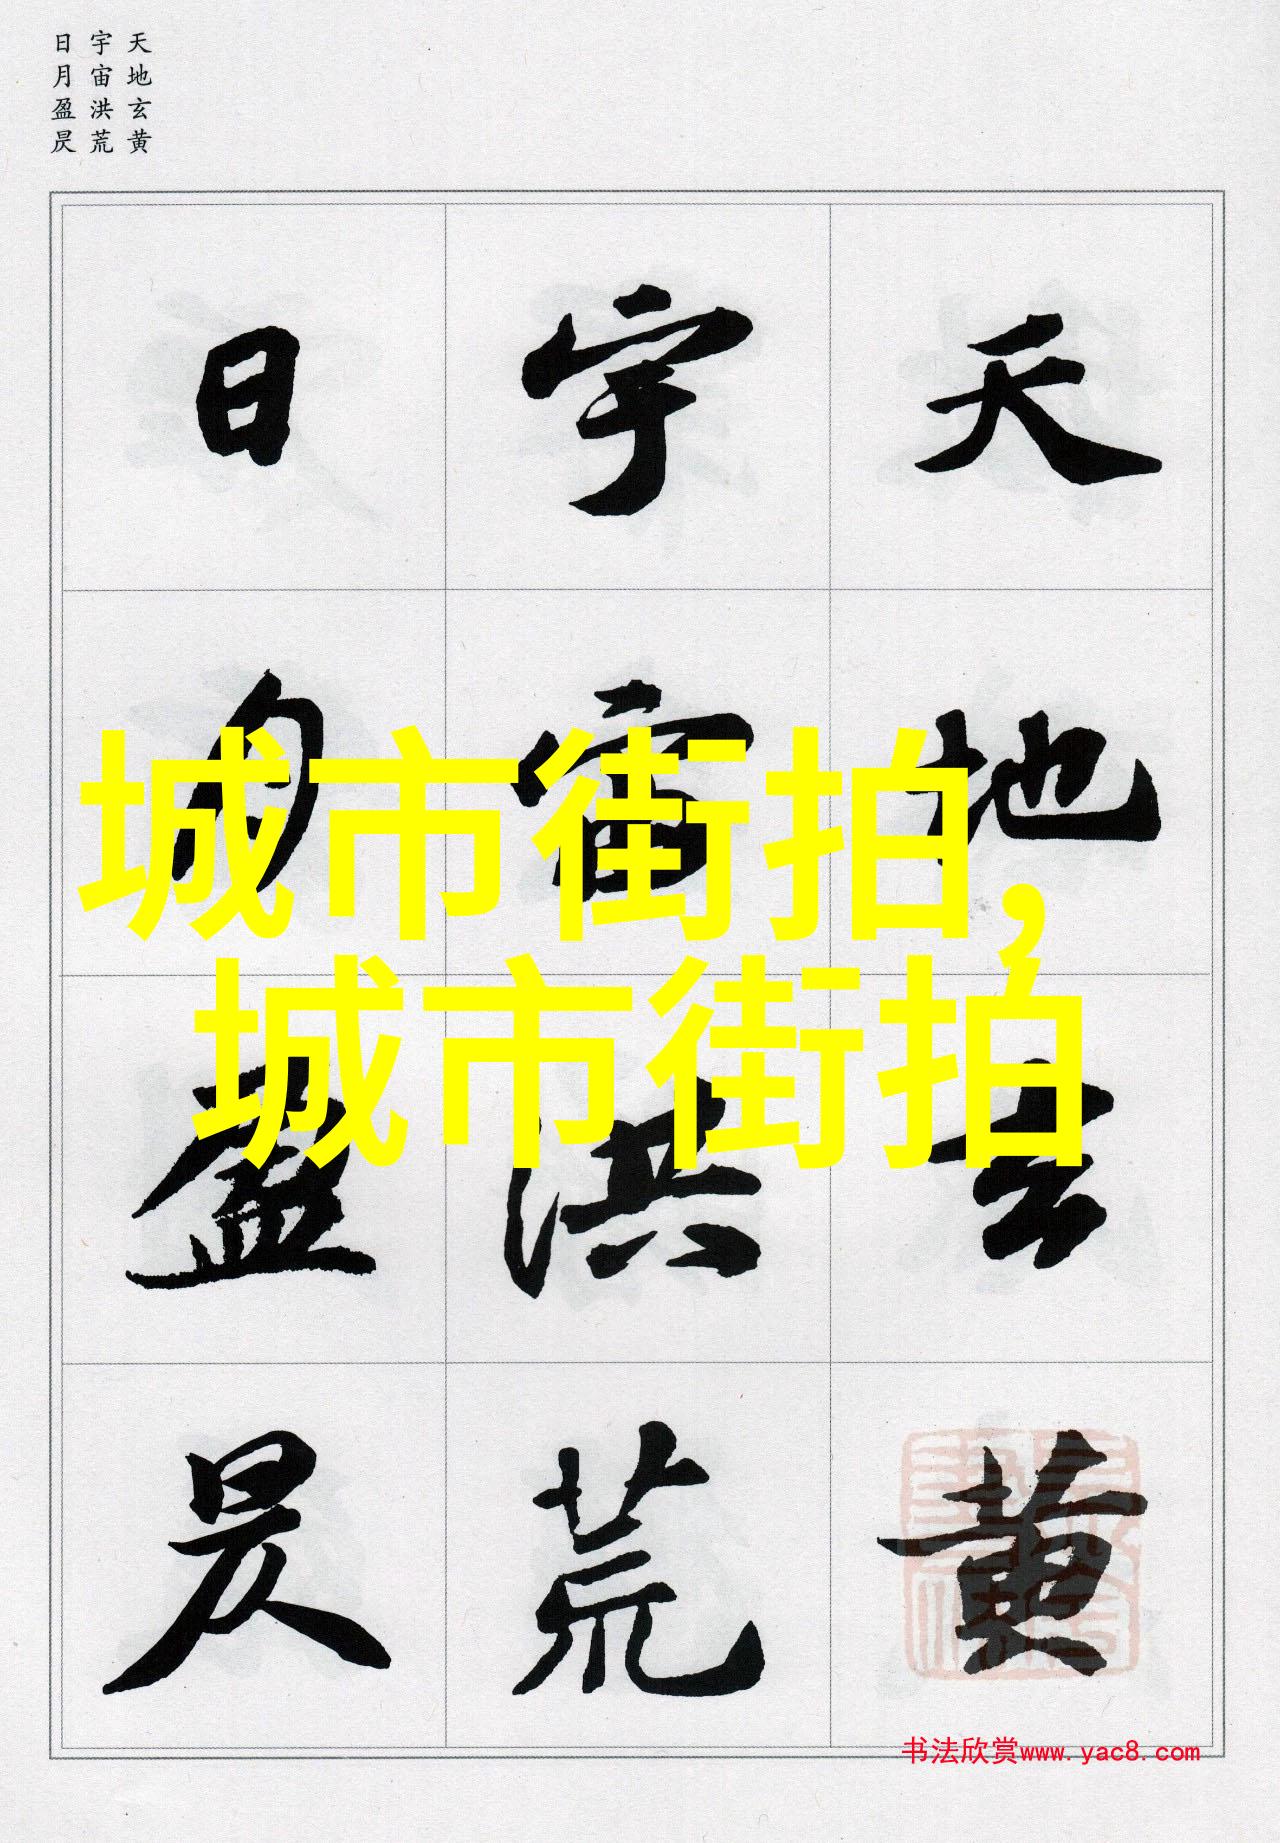 天地玄黄
宇宙洪荒
日月盈昃
天地玄黄
宇宙洪荒
日月盈昃
城市街拍,
城市街拍
书法欣赏www.yac8.com